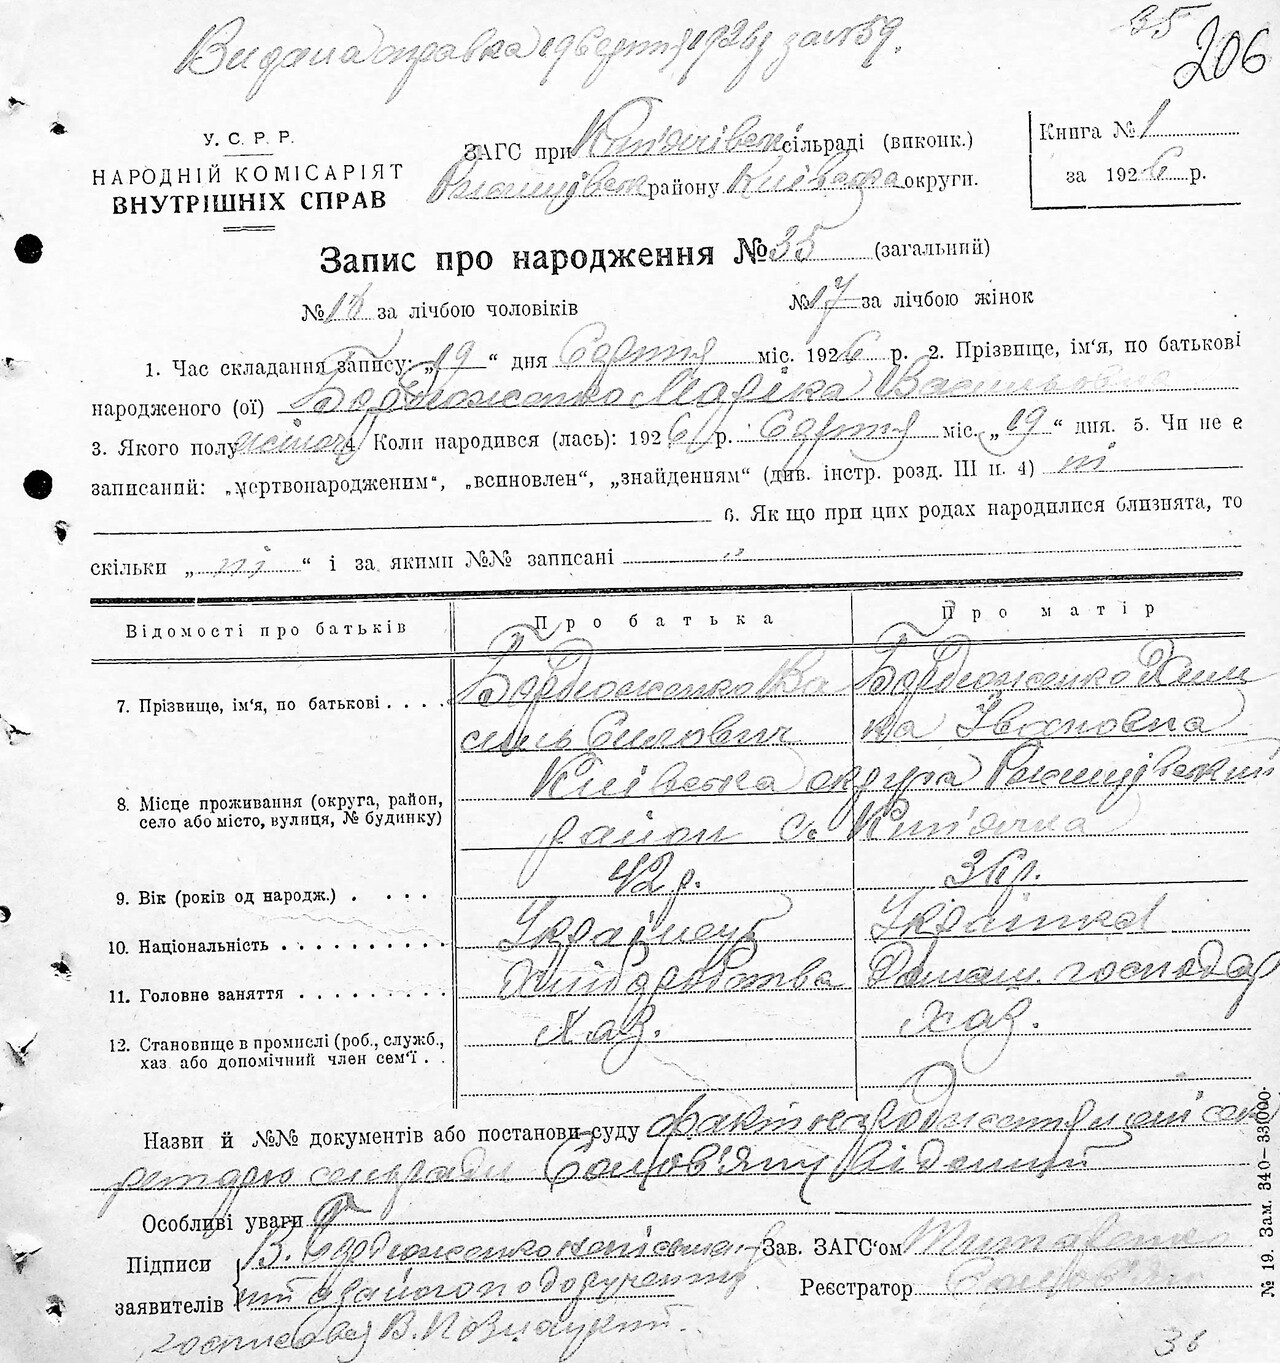 Видана справка 19 серпня 1926 р за №59.
35
206
У. С. Р. Р.
НАРОДНІЙ КОМІСАРІЯТ
ВНУТРІШНІХ СПРАВ
ЗАГС при сільраді (виконк.)
району Київська округи.
Книга № 1
за 1926 р.
Запис про народження № 35 (загальний)
№ 18 за лічбою чоловіків № 17 за лічбою жінок
1. Час складання запису: „19“ дня Серпня міс. 1926 р. 2. Прізвище, ім'я, по батькові
народженого (ої) Марійка Васильовна
3. Якого полу жіноч 4. Коли народився (лась): 1926 р. Серпня міс. „19“ дня. 5. Чи не є
записаний: „мертвонародженим“, „всиновлен“, „знайденням“ (див. інстр. розд. III п. 4) ні
6. Якщо при цих родах народилися близнята, то
скільки „ ні “ і за якими №№ записані "
Відомості про батьків Про батька Про матір
7. Прізвище, ім'я, по батькові . . . . Ва
силь Силович Івановна
8. Місце проживання (округа, район,
село або місто, вулиця, № будинку)
Київська округа
район с.
9. Вік (років од народж.) . . . . 42 р. 36 р.
10. Національність . . . . . . . . . . Українець Українка
11. Головне заняття . . . . . . . . . Хліборобства Домаш. господар
12. Становище в промислі (роб., служб.,
хаз або допомічний член сем'ї . . Хаз. Хаз.
Назви й №№ документів або постанови суду факт народження мені сек
ретарю сельради Солов'яну відомий
Особливі уваги
Підписи
заявителів
В. неписьмен
ний а за його дорученням
росписався В.
Зав. ЗАГС'ом Титаренко
Реєстратор
№ 19. Зам. 340–33000.
36